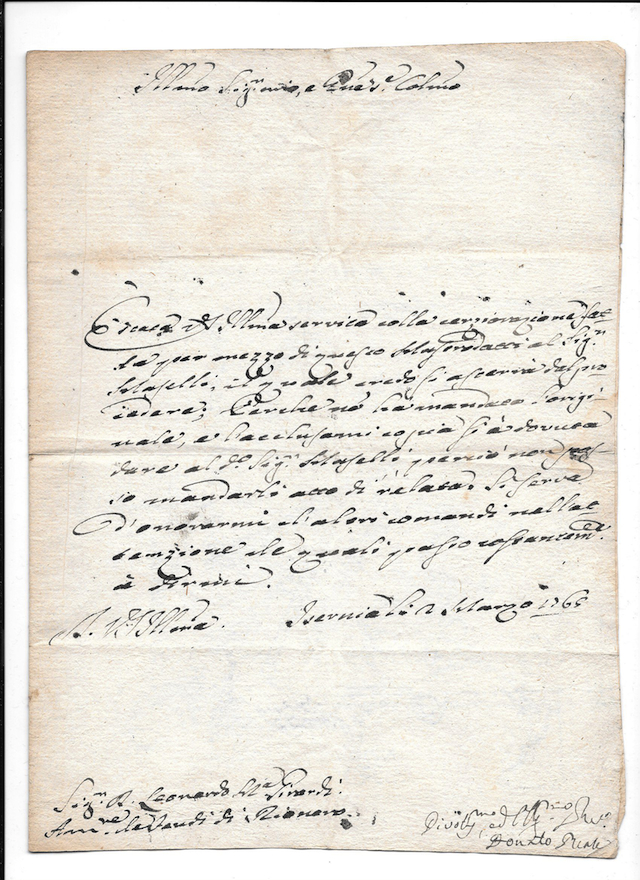 Illmo Sig.r mio, e Pne S.e Colmo
È stata V.S. Illma servita colla certiorazione fat
ta per mezzo di questo Mastrodatti al Sig.r
Maselli, il quale credo si asterrà del pro
cedere; Perche nò ha mandato l'origi
nale, e l'acclusami copia si è dovuta
dare al d.o Sig.r Maselli perciò non pos-
so mandarli atto di relata. Si serva
d'onorarmi d'altri comandi nell'at
tenzione de quali passo costantem.te
à dirmi.
D. V.S. Illma. Isernia li 2 Marzo 1765
Sig.r D. Leonardo M.a Girardi
Amre de Vendi di Rionero.
Divot.mo ed
Donato